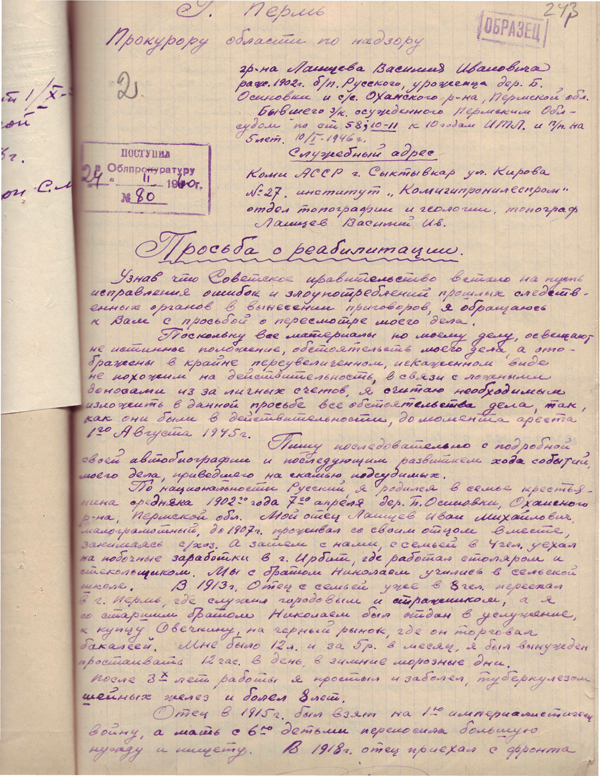 г. Пермь
243
ОБРАЗЕЦ
Прокурору области по надзору
2.
гр-на Лапщева Василия Ивановича
рожд. 1902г. б/п, Русского, уроженца дер. Б.
Осиновки и с/с. Оханского р-на, Пермской обл.
Бывшего з/к. осужденного Пермским Обл-
судом по ст 58 п 10-11 к 10 годам ИТЛ. и п/п на
5 лет. 10/II-1946г.
Служебный адрес
Коми АССР г. Сыктывкар ул. Кирова
№ 27. институт „Комигипронилеспром"
отдел топографии и геологии, топограф
Лапщев Василий Ив.
ПОСТУПИЛ
Облпрокуратуру
24 " II 1960г.
№ 80
Просьба о реабилитации.
Узнав что Советское правительство встало на путь
исправления ошибок и злоупотреблений прошлых следств-
енных органов в вынесении приговоров, я обращаюсь
к Вам с просьбой о пересмотре моего дела.
Поскольку все материалы по моему делу, освещают
не истинное положение, обстоятельств моего дела, а ото-
бражены в крайне преувеличенном, искаженном виде
не похожим на действительность, в связи с ложными
доносами из за личных счетов, я считаю необходимым
изложить в данной просьбе все обстоятельства дела, так,
как они были в действительности, до момента ареста
1го Августа 1945г.
Пишу последовательно с подробной
своей автобиографии и последующим развитием хода событий,
моего дела, приведшего на скамью подсудимых.
По национальности Русский, я родился в семье крестья-
нина средняка 1902го года 7го апреля дер. Б. Осиновки, Оханского
р-на, Пермской обл. Мой отец Лапщев Иван Михайлович
малограмотный, до 1907г. проживал со своим отцом вместе,
занимаясь с/хоз. А затем с нами, с семьей в 4 чел. уехал
на побочные заработки в г. Ирбит, где работал столяром и
стекольщиком. Мы с братом Николаем учились в сельской
школе. В 1913г. Отец с семьей уже в 8 чел. переехал
в г. Пермь, где служил городовым и стражником, а я
со старшим братом Николаем был отдан в услужение,
к купцу Овечкину, на черный рынок, где он торговал
бакалеей. Мне было 12л. и за 5р. в месяц, я был вынужден
простаивать 12 час. в день, в зимние морозные дни.
После 3х лет работы я простыл и заболел, туберкулезом
шейных желез и болел 8 лет.
Отец в 1915г. был взят на 1ю империалистическ
войну, а мать с 6ю детьми переносила большую
нужду и нищету. В 1918г. отец приехал с фронта